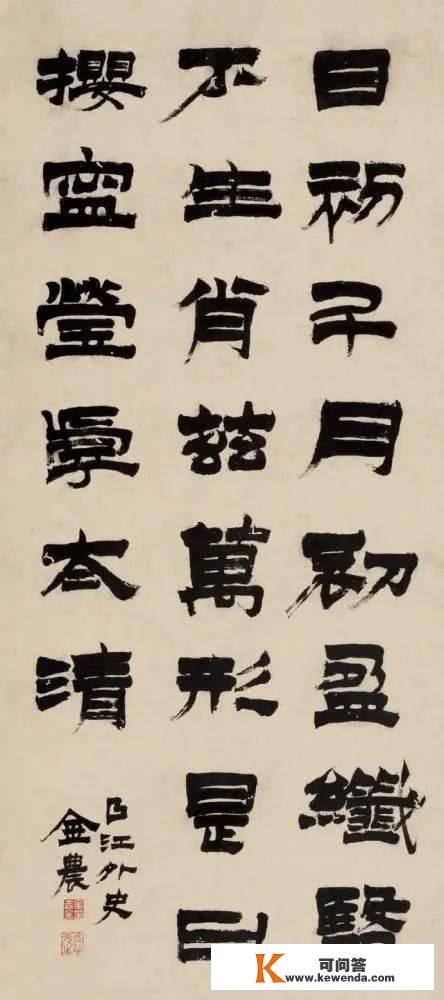 日初升月初盈纖翳
不生肖茲萬形是曰
攖寧瑩乎太清
曲江外史
金農
K 可问答
www.kewenda.com